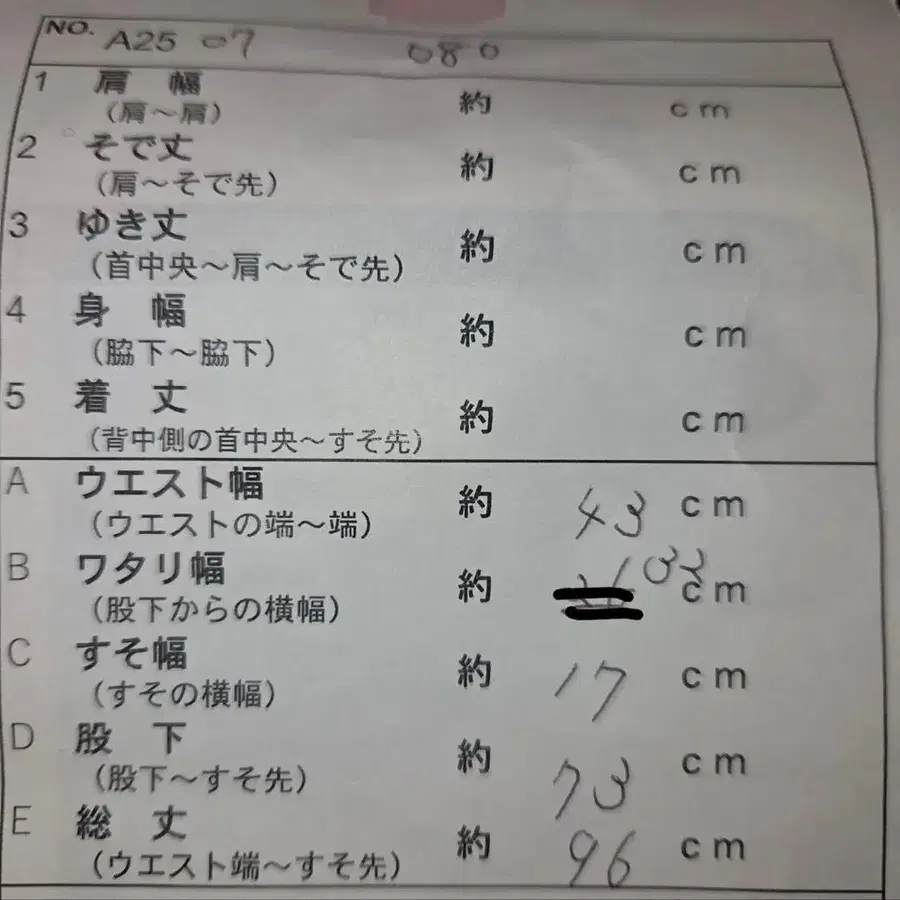 NO. A25 07 080
1 肩 幅 約 cm
(肩〜肩)
2 そで丈 約 cm
(肩〜そで先)
3 ゆき丈 約 cm
(首中央〜肩〜そで先)
4 身 幅 約 cm
(脇下〜脇下)
5 着 丈 約 cm
(背中側の首中央〜すそ先)
A ウエスト幅 約 43 cm
(ウエストの端〜端)
B ワタリ幅 約 32 cm
(股下からの横幅)
C すそ幅 約 17 cm
(すその横幅)
D 股 下 約 73 cm
(股下〜すそ先)
E 総 丈 約 96 cm
(ウエスト端〜すそ先)